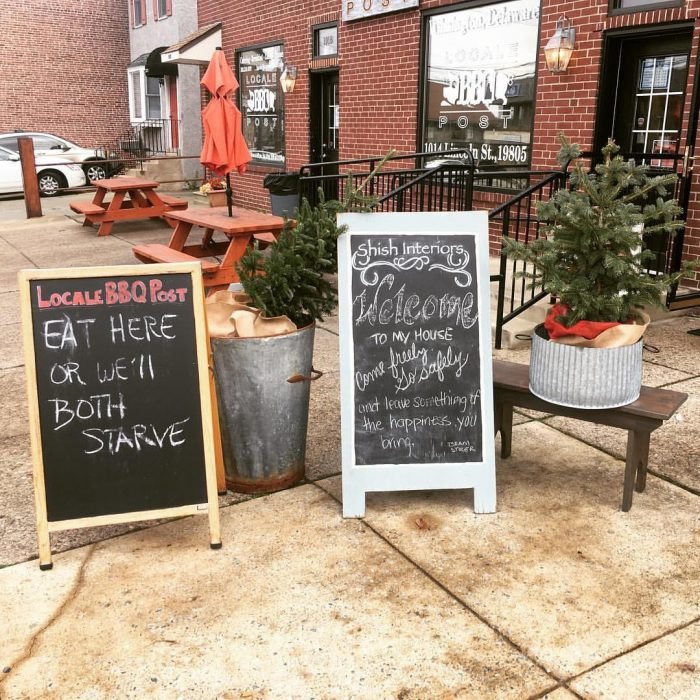 POST
Wilmington, Delaware
LOCALE
BBQ
POST
1014 Lincoln St.,19805
LOCALE
BBQ
POST
LOCALE BBQ POST
EAT HERE
OR WE'll
BOTH
STARVE
Shish Interiors
Welcome
TO MY HOUSE
Come freely
Go safely
and leave something of
the happiness you
bring.
BRAM
STOKER